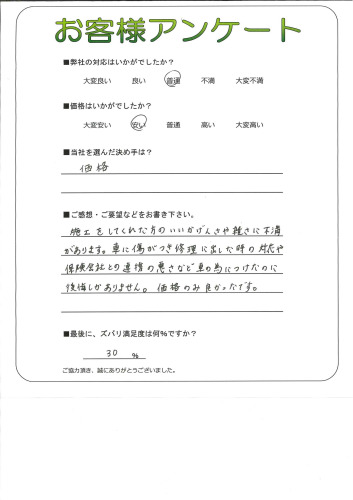 お客様アンケート
■弊社の対応はいかがでしたか？
大変良い 良い 普通 不満 大変不満
■価格はいかがでしたか？
大変安い 安い 普通 高い 大変高い
■当社を選んだ決め手は？
価格
■ご感想・ご要望などをお書き下さい。
施工をしてくれた方のいいかげんさや雑さに不満
があります。車に傷がつき修理に出した時の対応や
保険会社との連携の悪さなど車の為につけたのに
後悔しかありません。価格のみ良かったです。
■最後に、ズバリ満足度は何%ですか？
30 %
ご協力頂き、誠にありがとうございました。